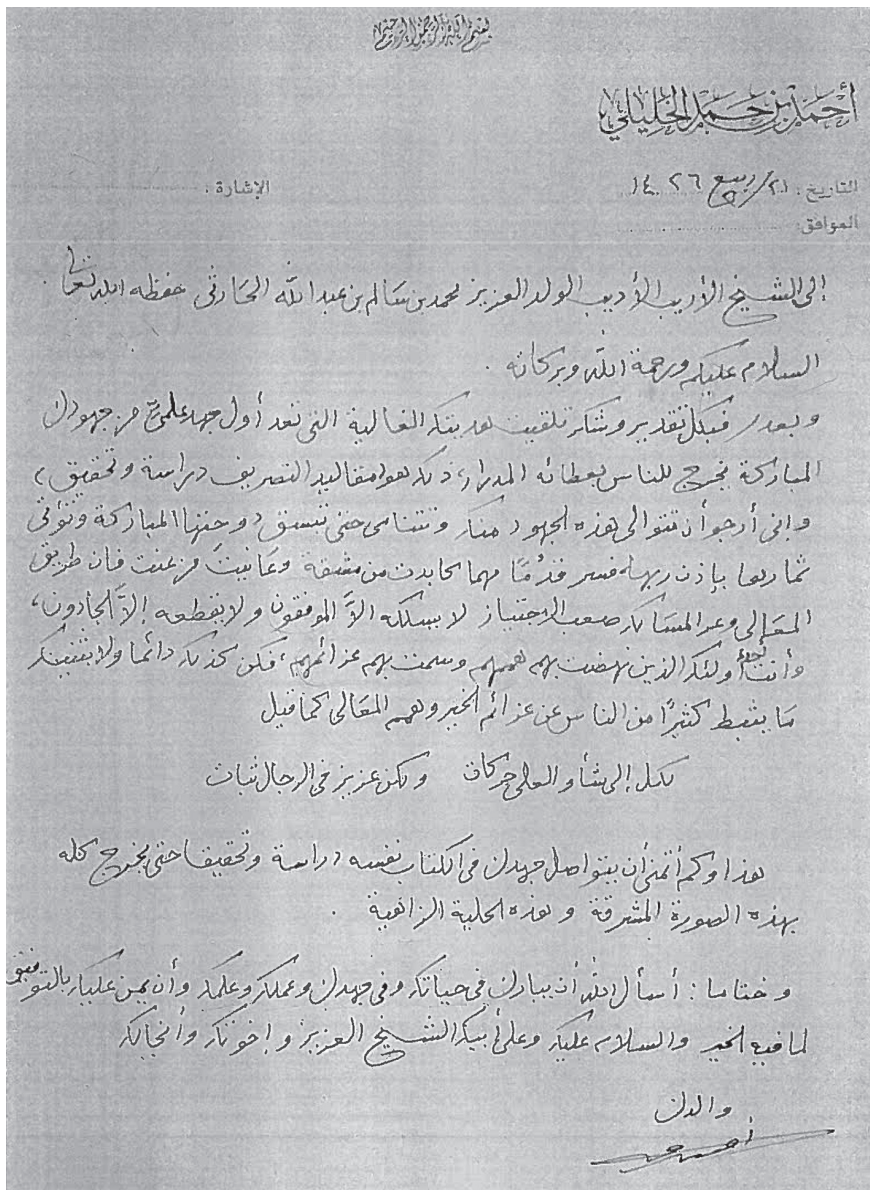 بسم الله الرحمن الرحيم
أحمد بن حمد الخليلي
التاريخ: ٢١/ربيع ١٤٢٦ الإشارة:
الموافق:
إلى الشيخ الأريب الأديب الولد العزيز محمد بن سالم بن عبدالله الحارثي حفظه الله تعالى
السلام عليكم ورحمة الله وبركاته.
وبعد، فبكل تقدير وشكر تلقيت هديتك الغالية التي تعد أول جهد علمي من جهودك
المباركة يخرج للناس بعطائه المدرار، ذلك هو مقاليد التصريف دراسة وتحقيق،
وإني أرجو أن تتوالى هذه الجهود منك وتتنامى حتى تتسق دوحتها المباركة وتؤتي
ثمارها بإذن ربها، فسر قدُمًا مهما كابدت من مشقة وعانيتَ من عنت فإن طريق
المعالي وعر المسالك صعب الاجتياز لا يسلكه إلاَّ الموفقون ولا يقطعه إلاَّ الجادون،
وأنت أحد أولئك الذين نهضت بهم هممهم وسمت بهم عزائمهم، فكن كذلك دائما ولا يثنينك
مَا يثبط كثيرًا من الناس عن عزائم الخير وهمم المعَالي كما قيل
لكل إلى شأو العلى حركات ولكن عزيز في الرجال ثبات
هذا وكم أتمنى أن يتواصل جهدك في الكتاب نفسه دراسة وتحقيقا حتى يخرج كله
بهذه الصورة المشرقة وهذه الحلية الزاهية.
وختاما: أسأل الله أن يبارك في حياتك وفي جهدك وعملك وعلمك وأن يمن عليك بالتوفيق
لما فيه الخير والسلام عليك وعلى أبيك الشيخ العزيز وإخوتك وأنجالك
والدك
أحمد